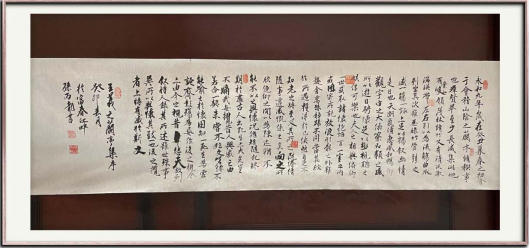 永和九年歲在癸丑暮春之初會
于會稽山陰之蘭亭脩禊事
也群賢畢至少長咸集此地
有崇山峻領茂林脩竹又有清流激
湍暎帶左右引以為流觴曲水
列坐其次雖無絲竹管弦之
盛一觴一詠亦足以暢敘幽情
是日也天朗氣清惠風和暢仰
觀宇宙之大俯察品類之盛
所以遊目騁懷足以極視聽之
娛信可樂也夫人之相與俯仰
一世或取諸懷抱悟言一室之內
或因寄所託放浪形骸之外雖
趣舍萬殊靜躁不同當其欣
於所遇暫得於己快然自足不
知老之將至及其所之既倦情
隨事遷感慨係之矣向之所
欣俛仰之間以為陳迹猶不
能不以之興懷況脩短隨化終
期於盡古人云死生亦大矣豈不
痛哉每攬昔人興感之由
若合一契未嘗不臨文嗟悼不
能喻之於懷固知一死生為虛
誕齊彭殤為妄作後之視今
亦由今之視昔悲夫故列
敘時人錄其所述雖世殊事
異所以興懷其致一也後之攬
者亦將有感於斯文
王羲之蘭亭集序
癸卯春月
於富春江畔
孫乃龍書